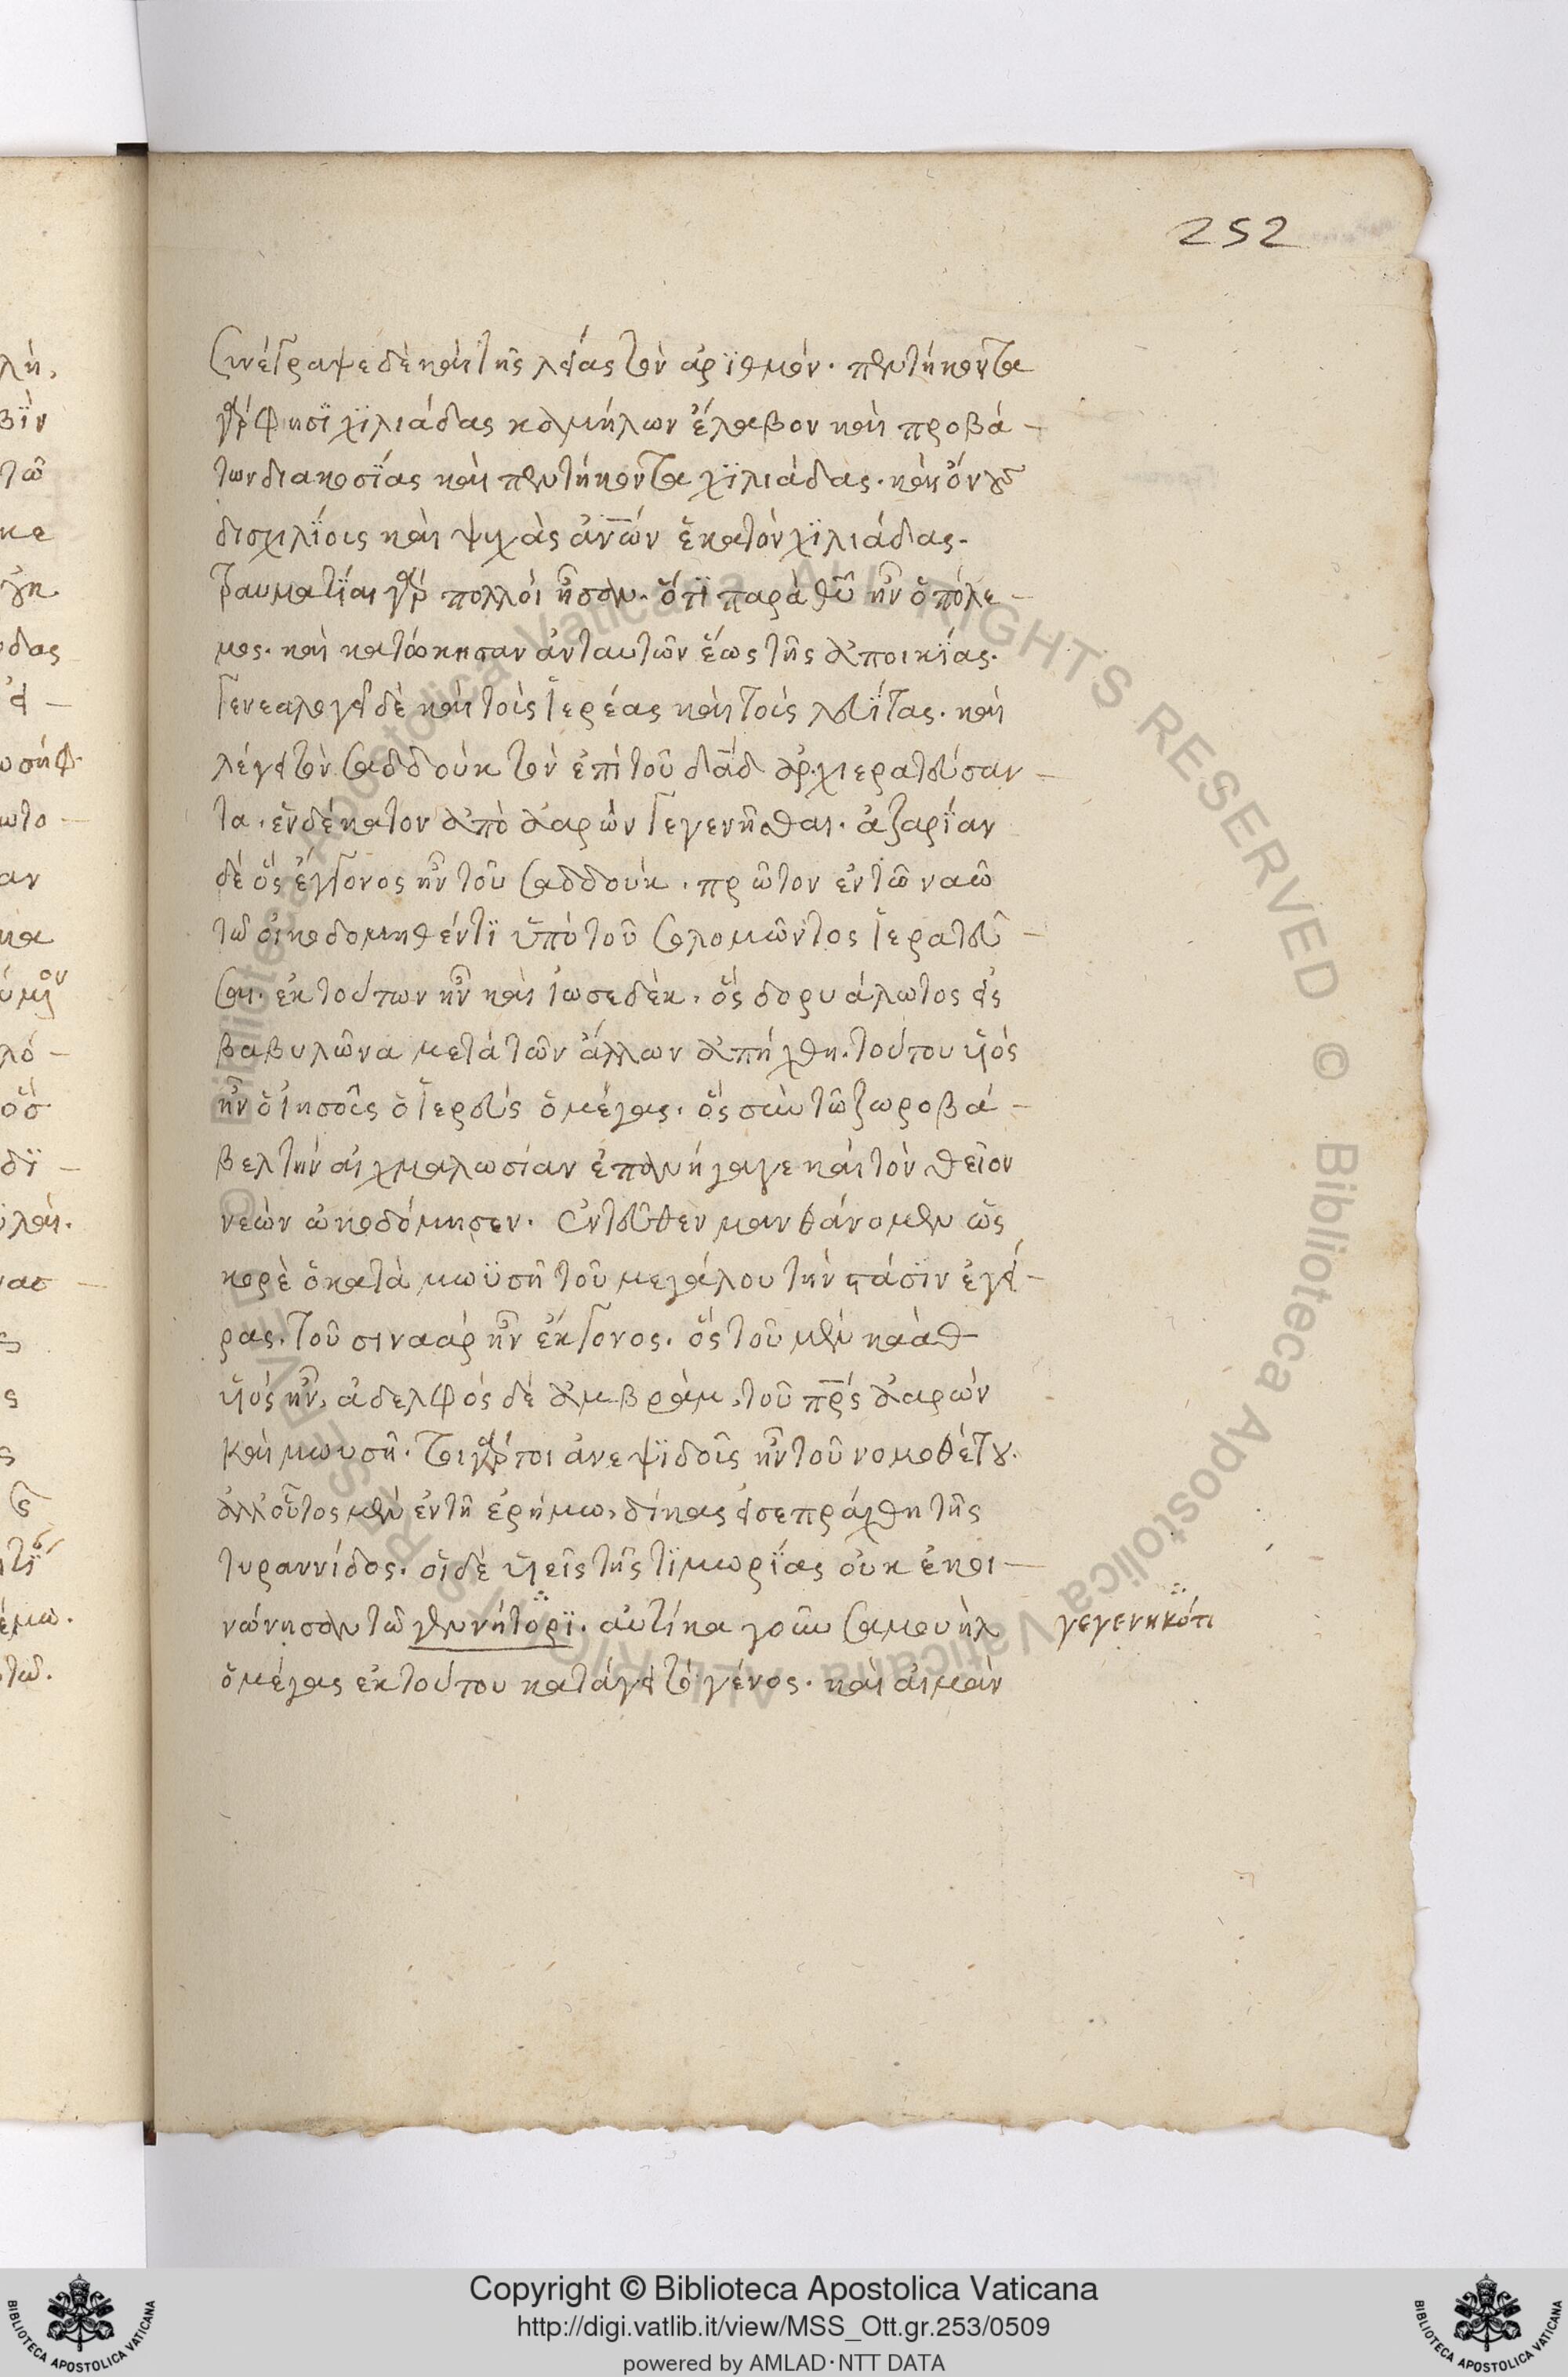 252
Συνέγραψε δὲ καὶ τῆς λείας τὸν ἀριϊθμόν. πεντήκοντα
γάρ φησϊ χϊλιάδας καμήλων ἔλαβον καὶ προβά-
των διακοσΐας καὶ πεντήκοντα χϊλιάδας. καὶ ὄνους
δισχιλΐοις καὶ ψυχὰς ἀν̅ῶν ἑκατὸν χϊλιάδας.
τραυματΐαι γάρ πολλοὶ ἦσαν. ὅτϊ παρὰ θῦ ἦν ὁ πόλε-
μος. καὶ κατώκησαν ἀνταυτῶν ἕως τῆς ἀποικΐας.
Γενεαλογεῖ δὲ καὶ τοὶς ἱερέας καὶ τοὶς λευΐτας. καὶ
λέγει τὸν Σαδδοὺκ τὸν ἐπὶ τοῦ δα̅δ ἀρχιερατεύσαν-
τα. ἑνδέκατον ἀπὸ ἀαρὼν γεγενῆσθαι. ἀζαρΐαν
δὲ ὅς ἔγγονος ἦν τοῦ Σαδδοὺκ. πρῶτον ἐν τῶ ναῶ
τῶ οἰκοδομηθέντϊ ὑπὸ τοῦ Σολομῶντος ἱερατεῦ-
σαι. ἐκ τούτων ἦν καὶ ἰωσεδὲκ. ὅς δορυάλωτος εἰς
βαβυλῶνα μετὰ τῶν ἄλλων ἀπήχθη. τούτου υἱός
ἦν ὁ ἰησοῖς ὁ ἱερεύς ὁ μέγας. ὅς σὺν τῶ ζωροβά-
βελ τὴν αἰχμαλωσίαν ἐπανήγαγε καὶ τὸν θεῖον
νεὼν ὠκοδόμησεν. ἐντεῦθεν μανθάνομεν ὡς
κορὲ ὁ κατὰ μωϋσῆ τοῦ μεγάλου τὴν στάσϊν ἐγεί-
ρας. τοῦ σιναὰρ ἦν ἔκγονος. ὅς τοῦ μὲν καὰθ
υἱός ἦν, ἀδελφός δὲ ἀμβρὰμ, τοῦ πρ̅ς ἀαρών
καὶ μωυσῆ. τοιγάρτοι ἀνεψϊδοῖς ἦν τοῦ νομοθέτου.
ἀλλ οὗτος μὲν ἐν τῆ ἐρήμω, δίκας εἰσεπράχθη τῆς
τυραννίδος. οἱ δὲ υἱεῖς τῆς τϊμωρΐας οὐκ ἐκοι-
νώνησαν τῶ γεννήτορϊ. αὐτίκα γοῦν Σαμουὴλ
γεγεννηκότι
ὁ μέγας ἐκ τούτου κατάγει τὸ γένος. καὶ αἰμὰν
Copyright © Biblioteca Apostolica Vaticana
http://digi.vatlib.it/view/MSS_Ott.gr.253/0509
powered by AMLAD·NTT DATA